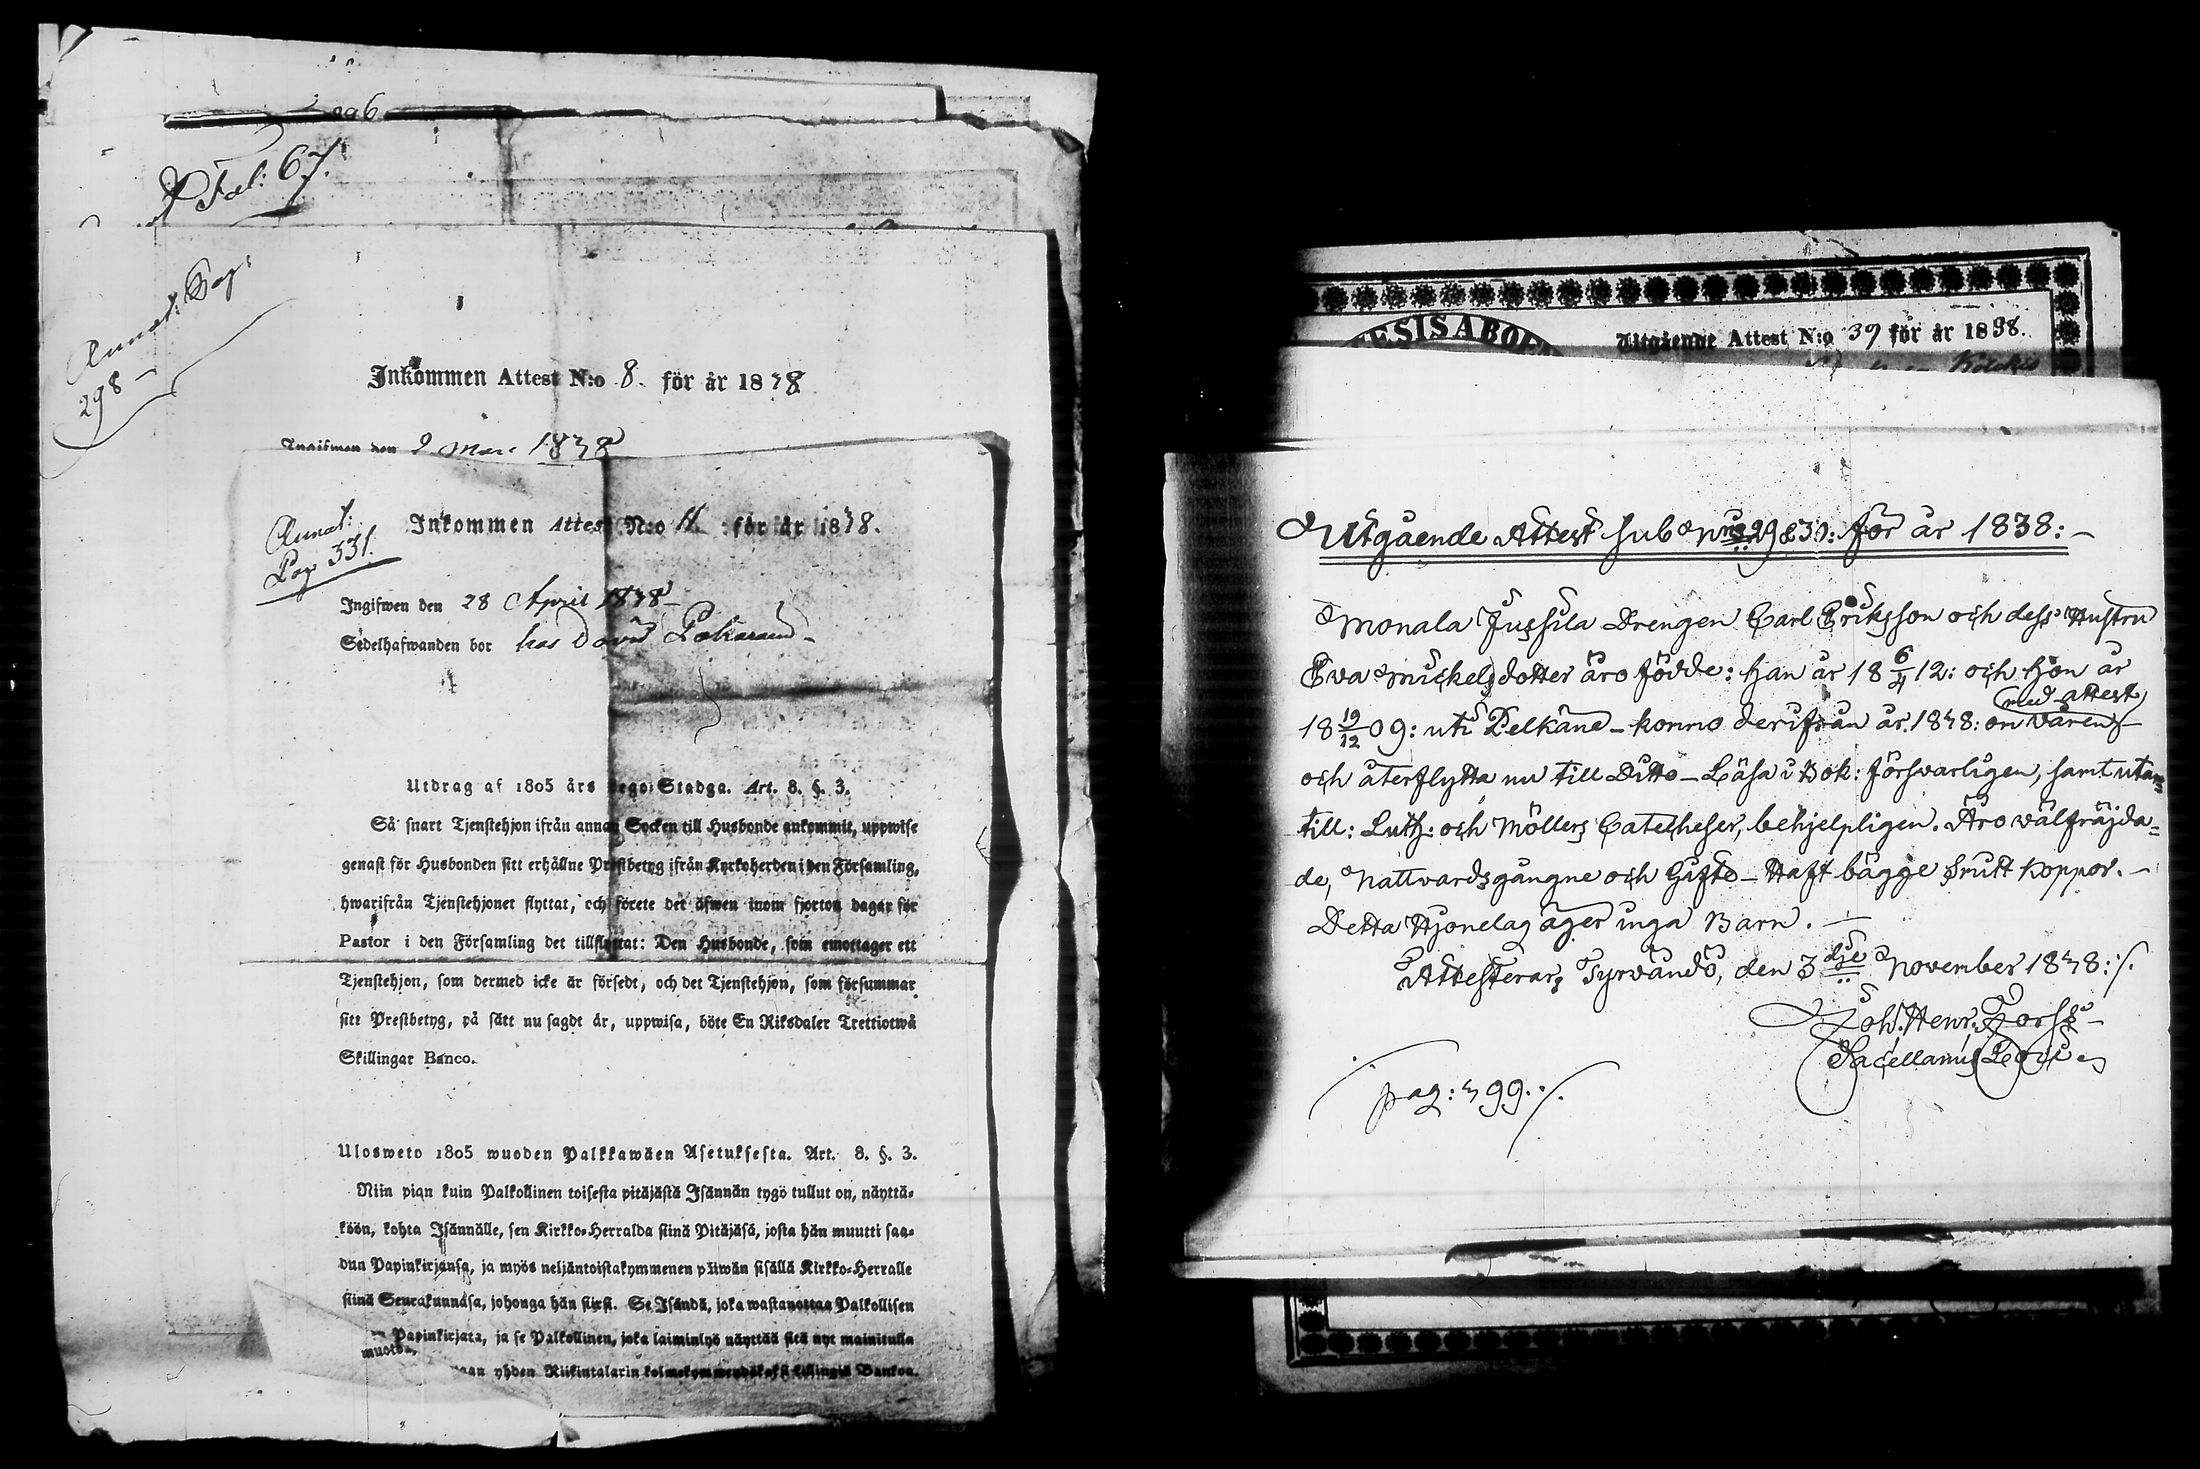 Fol: 67.
Annot. Pag:
298
Inkommen Attest N:o 8. för år 1838
Ingifwen den 9 Mars 1838
Annot:
Pag 331.
Inkommen Attest N:o 11 för år 1838.
Ingifwen den 28 April 1838
Sedelhafwanden bor hos David
Utdrag af 1805 års Lego-Stadga. Art. 8. §. 3.
Så snart Tjenstehjon ifrån annan Socken till Husbonde ankommit, uppwise
genast för Husbonden sitt erhållne Prestbetyg ifrån Kyrkoherden i den Församling,
hwarifrån Tjenstehjonet flyttat, och förete det äfwen inom fjorton dagar för
Pastor i den Församling det tillflyttat: Den Husbonde, som emottager ett
Tjenstehjon, som dermed icke är försedt, och det Tjenstehjon, som försummar
sitt Prestbetyg, på sätt nu sagdt är, uppwisa, böte En Riksdaler Trettiotwå
Skillingar Banco.
Ulosweto 1805 wuoden Palkkawäen Asetuksesta. Art. 8. §. 3.
Niin pian kuin Palkollinen toisesta pitäjästä Isännän tygö tullut on, näyttä-
köön, kohta Isännälle, sen Kirkko-Herralda siinä Pitäjäsä, josta hän muutti saa-
dun Papinkirjansa, ja myös neljäntoistakymmenen päiwän sisällä Kirkko-Herralle
siinä Seurakunnasa, johonga hän siirsi. Se Isändä, joka wastanottaa Palkollisen
Papinkirjata, ja se Palkollinen, joka laiminlyö näyttää sitä nyt mainitulla
muotoa,
yhden Riikintalarin kolmekymmendäkaksi killingiä Bankoa.
Utgående Attest N:o 39 för år 1838.
Utgående Attest sub Nris 29 & 30: för år 1838:
Monala Jussila Drengen Carl Eriksson och dess Hustru
Eva Mickelsdotter äro födde: han år 18 6/4 12: och hon år
med attest
18 19/12 09: uti Pelkäne - kommo derifrån år 1838: om våren
och återflytta nu till Ditto - Läsa i Bok: försvarligen, samt utan-
till: Luth: och Möllers Catecheser, behjelpligen. Äro välfräjda-
de, Nattvardsgångne och Gifte - Haft bägge Smitt koppor. -
Detta Hjonelag äger inga Barn. -
Attesterar, Tyrvändö, den 3dje November 1838:/.
Joh. Henr. Forss
Sacellanus Loci
pag: 399./.